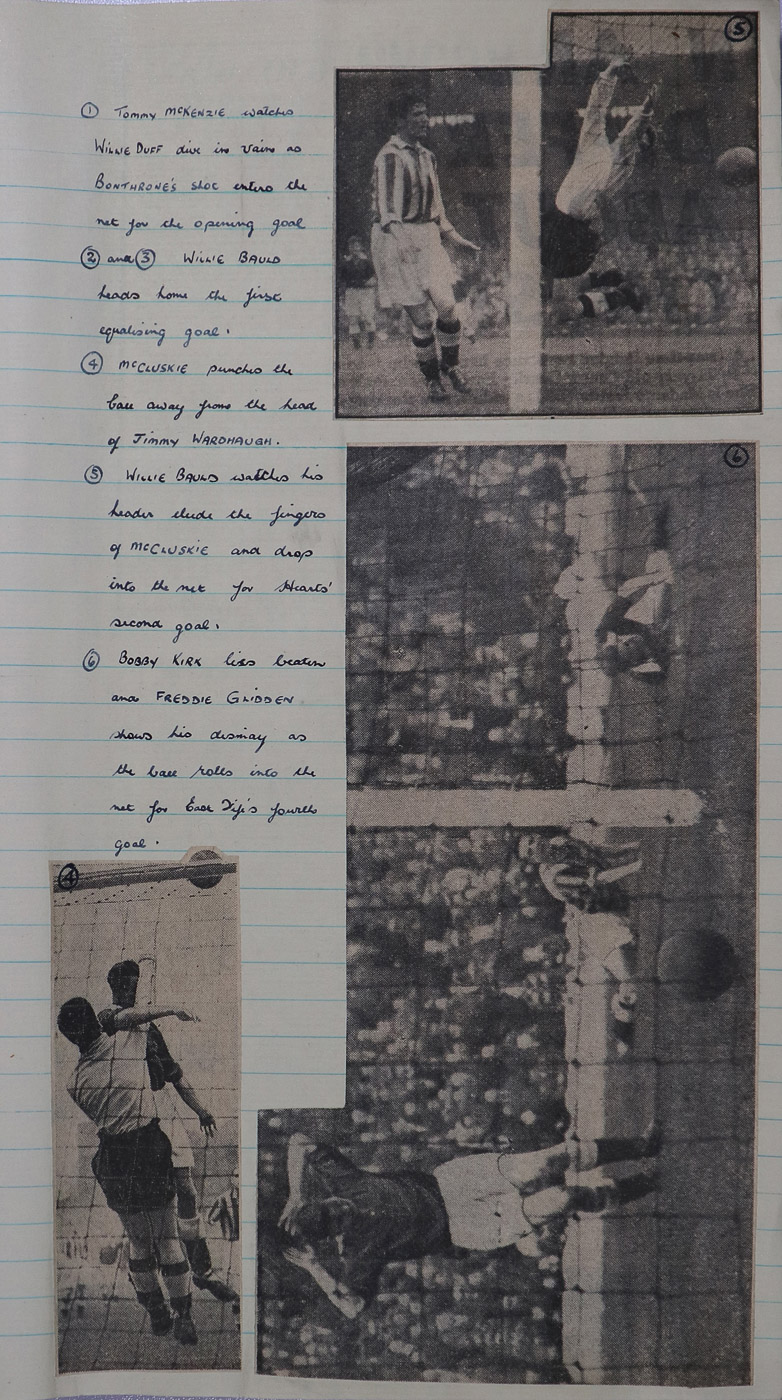 ① Tommy McKENZIE watches
WILLIE DUFF dive in vain as
BONTHRONE'S shot enters the
net for the opening goal
② and ③ WILLIE BAULD
heads home the first
equalising goal.
④ McCLUSKIE punches the
ball away from the head
of Jimmy WARDHAUGH.
⑤ WILLIE BAULD watches his
header elude the fingers
of McCLUSKIE and drop
into the net for Hearts'
second goal.
⑥ BOBBY KIRK lies beaten
and FREDDIE GLIDDEN
shows his dismay as
the ball rolls into the
net for East Fife's fourth
goal.
④
⑤
⑥